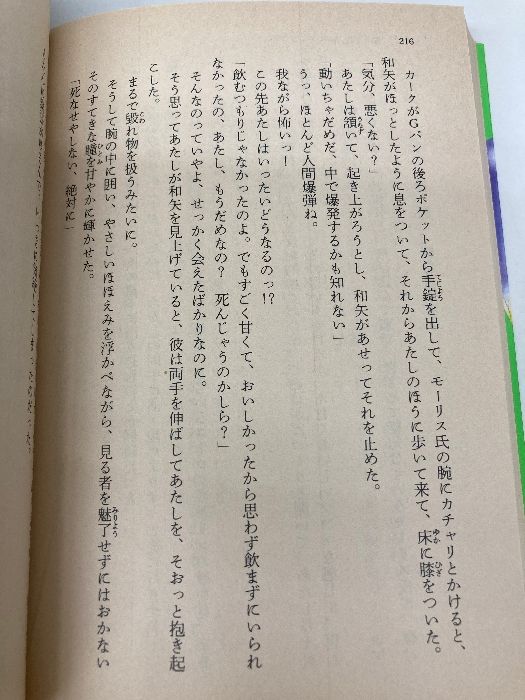 216
カークがGパンの後ろポケットから手錠を出して、モーリス氏の腕にカチャリとかけると、
和矢がほっとしたように息をついて、それからあたしのほうに歩いて来て、床に膝をついた。
「気分、悪くない？」
あたしは頷いて、起き上がろうとし、和矢があせってそれを止めた。
「動いちゃだめだ、中で爆発するかも知れない」
うっ、ほとんど人間爆弾ね。
我ながら怖いっ！
この先あたしはいったいどうなるのっ!?
「飲むつもりじゃなかったのよ。でもすごく甘くて、おいしかったから思わず飲まずにいられ
なかったの、あたし、もうだめなの？　死んじゃうのかしら？」
そんなのっていやよ、せっかく会えたばかりなのに。
そう思ってあたしが和矢を見上げていると、彼は両手を伸ばしてあたしを、そおっと抱き起
こした。
まるで毀れ物を扱うみたいに。
そうして腕の中に囲い、やさしいほほえみを浮かべながら、見る者を魅了せずにはおかない
そのすてきな瞳を甘やかに輝かせた。
「死なせやしない、絶対に」